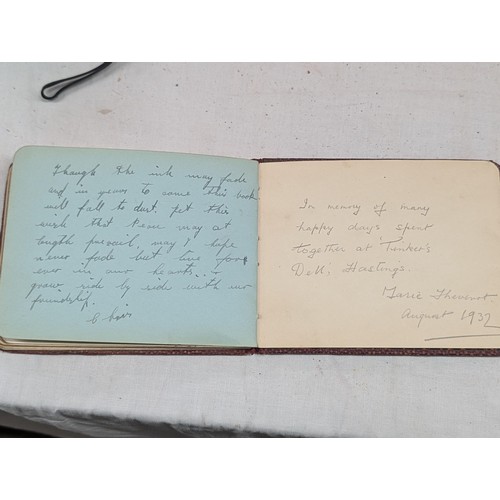 Though the ink may fade
and in years to come this book
will fall to dust, yet this
wish that Peace may at
length prevail, may I hope
never fade but live for
ever in our hearts
grow side by side with our
friendship.
In memory of many
happy days spent
together at
Dell, Hastings.
August 1932